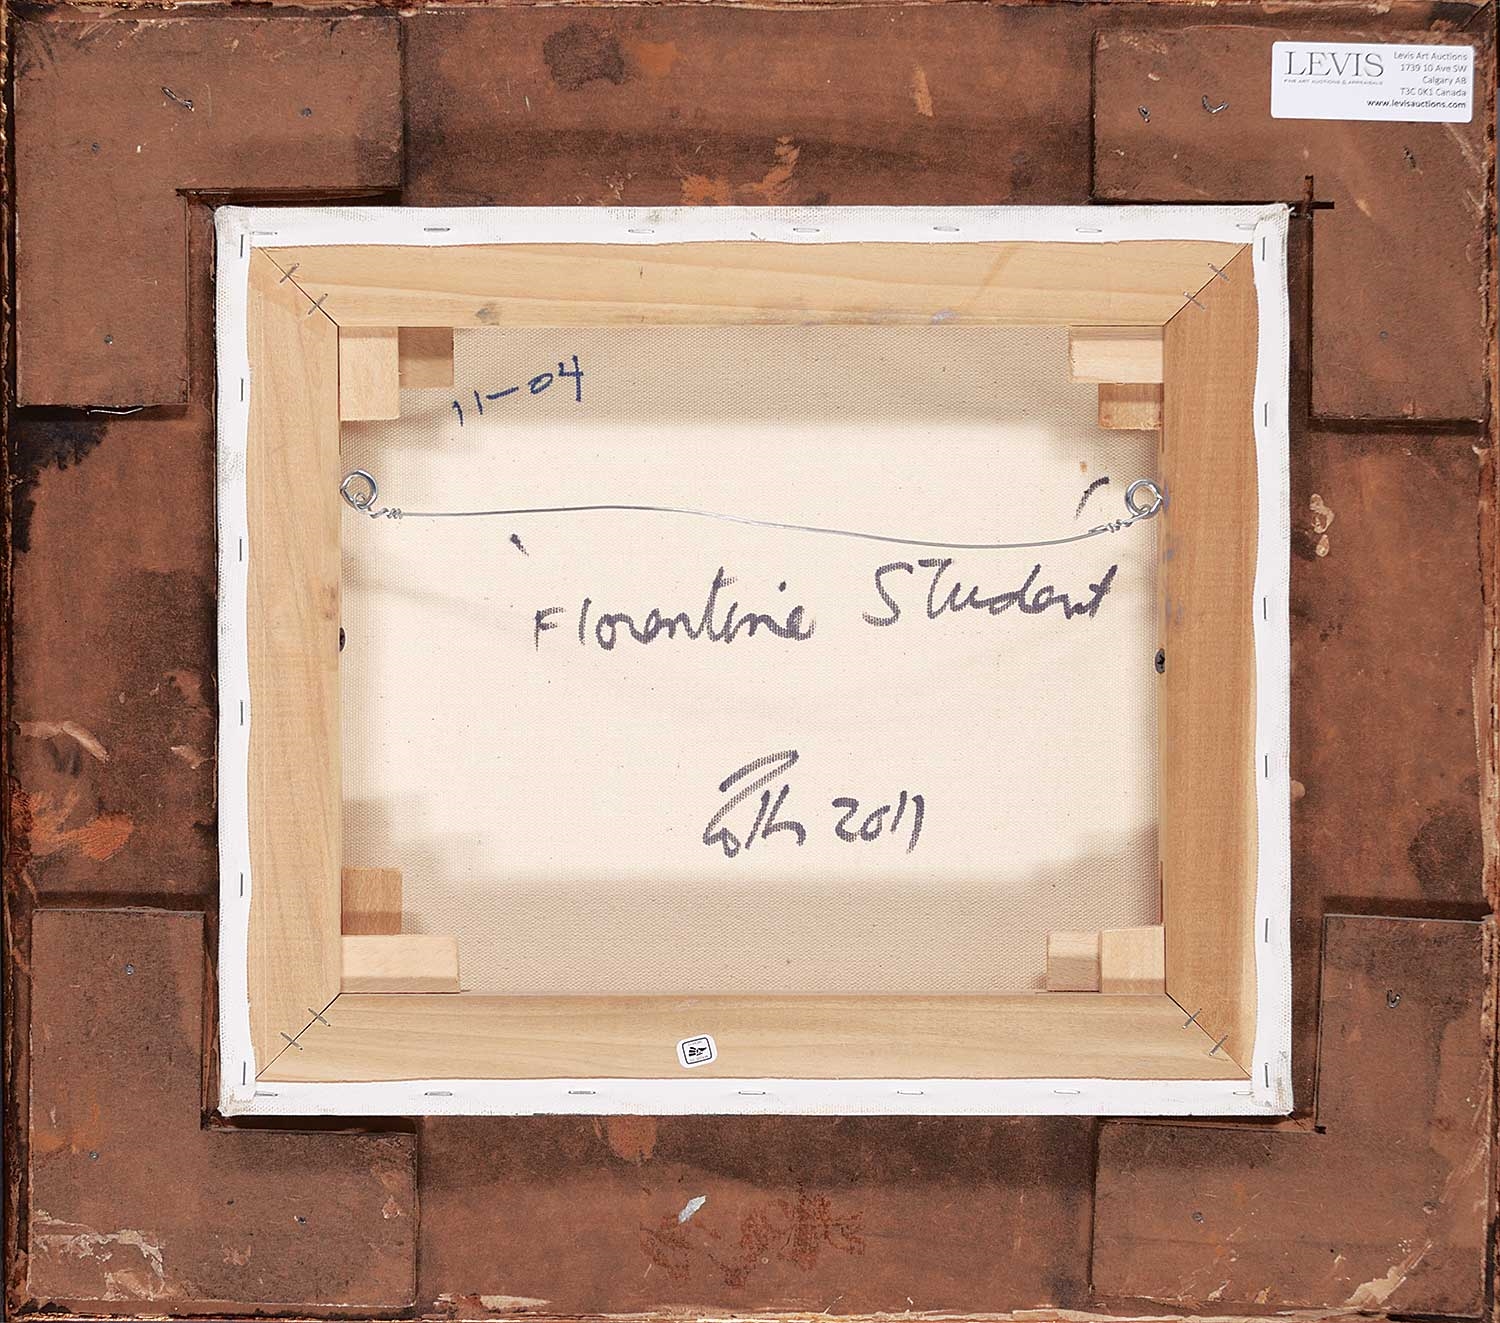 LEVIS
FINE ART AUCTIONS & APPRAISALS
Levis Art Auctions
1739 10 Ave SW
Calgary AB
T3C 0K1 Canada
www.levisauctions.com
11-04
Florentine Student
2011